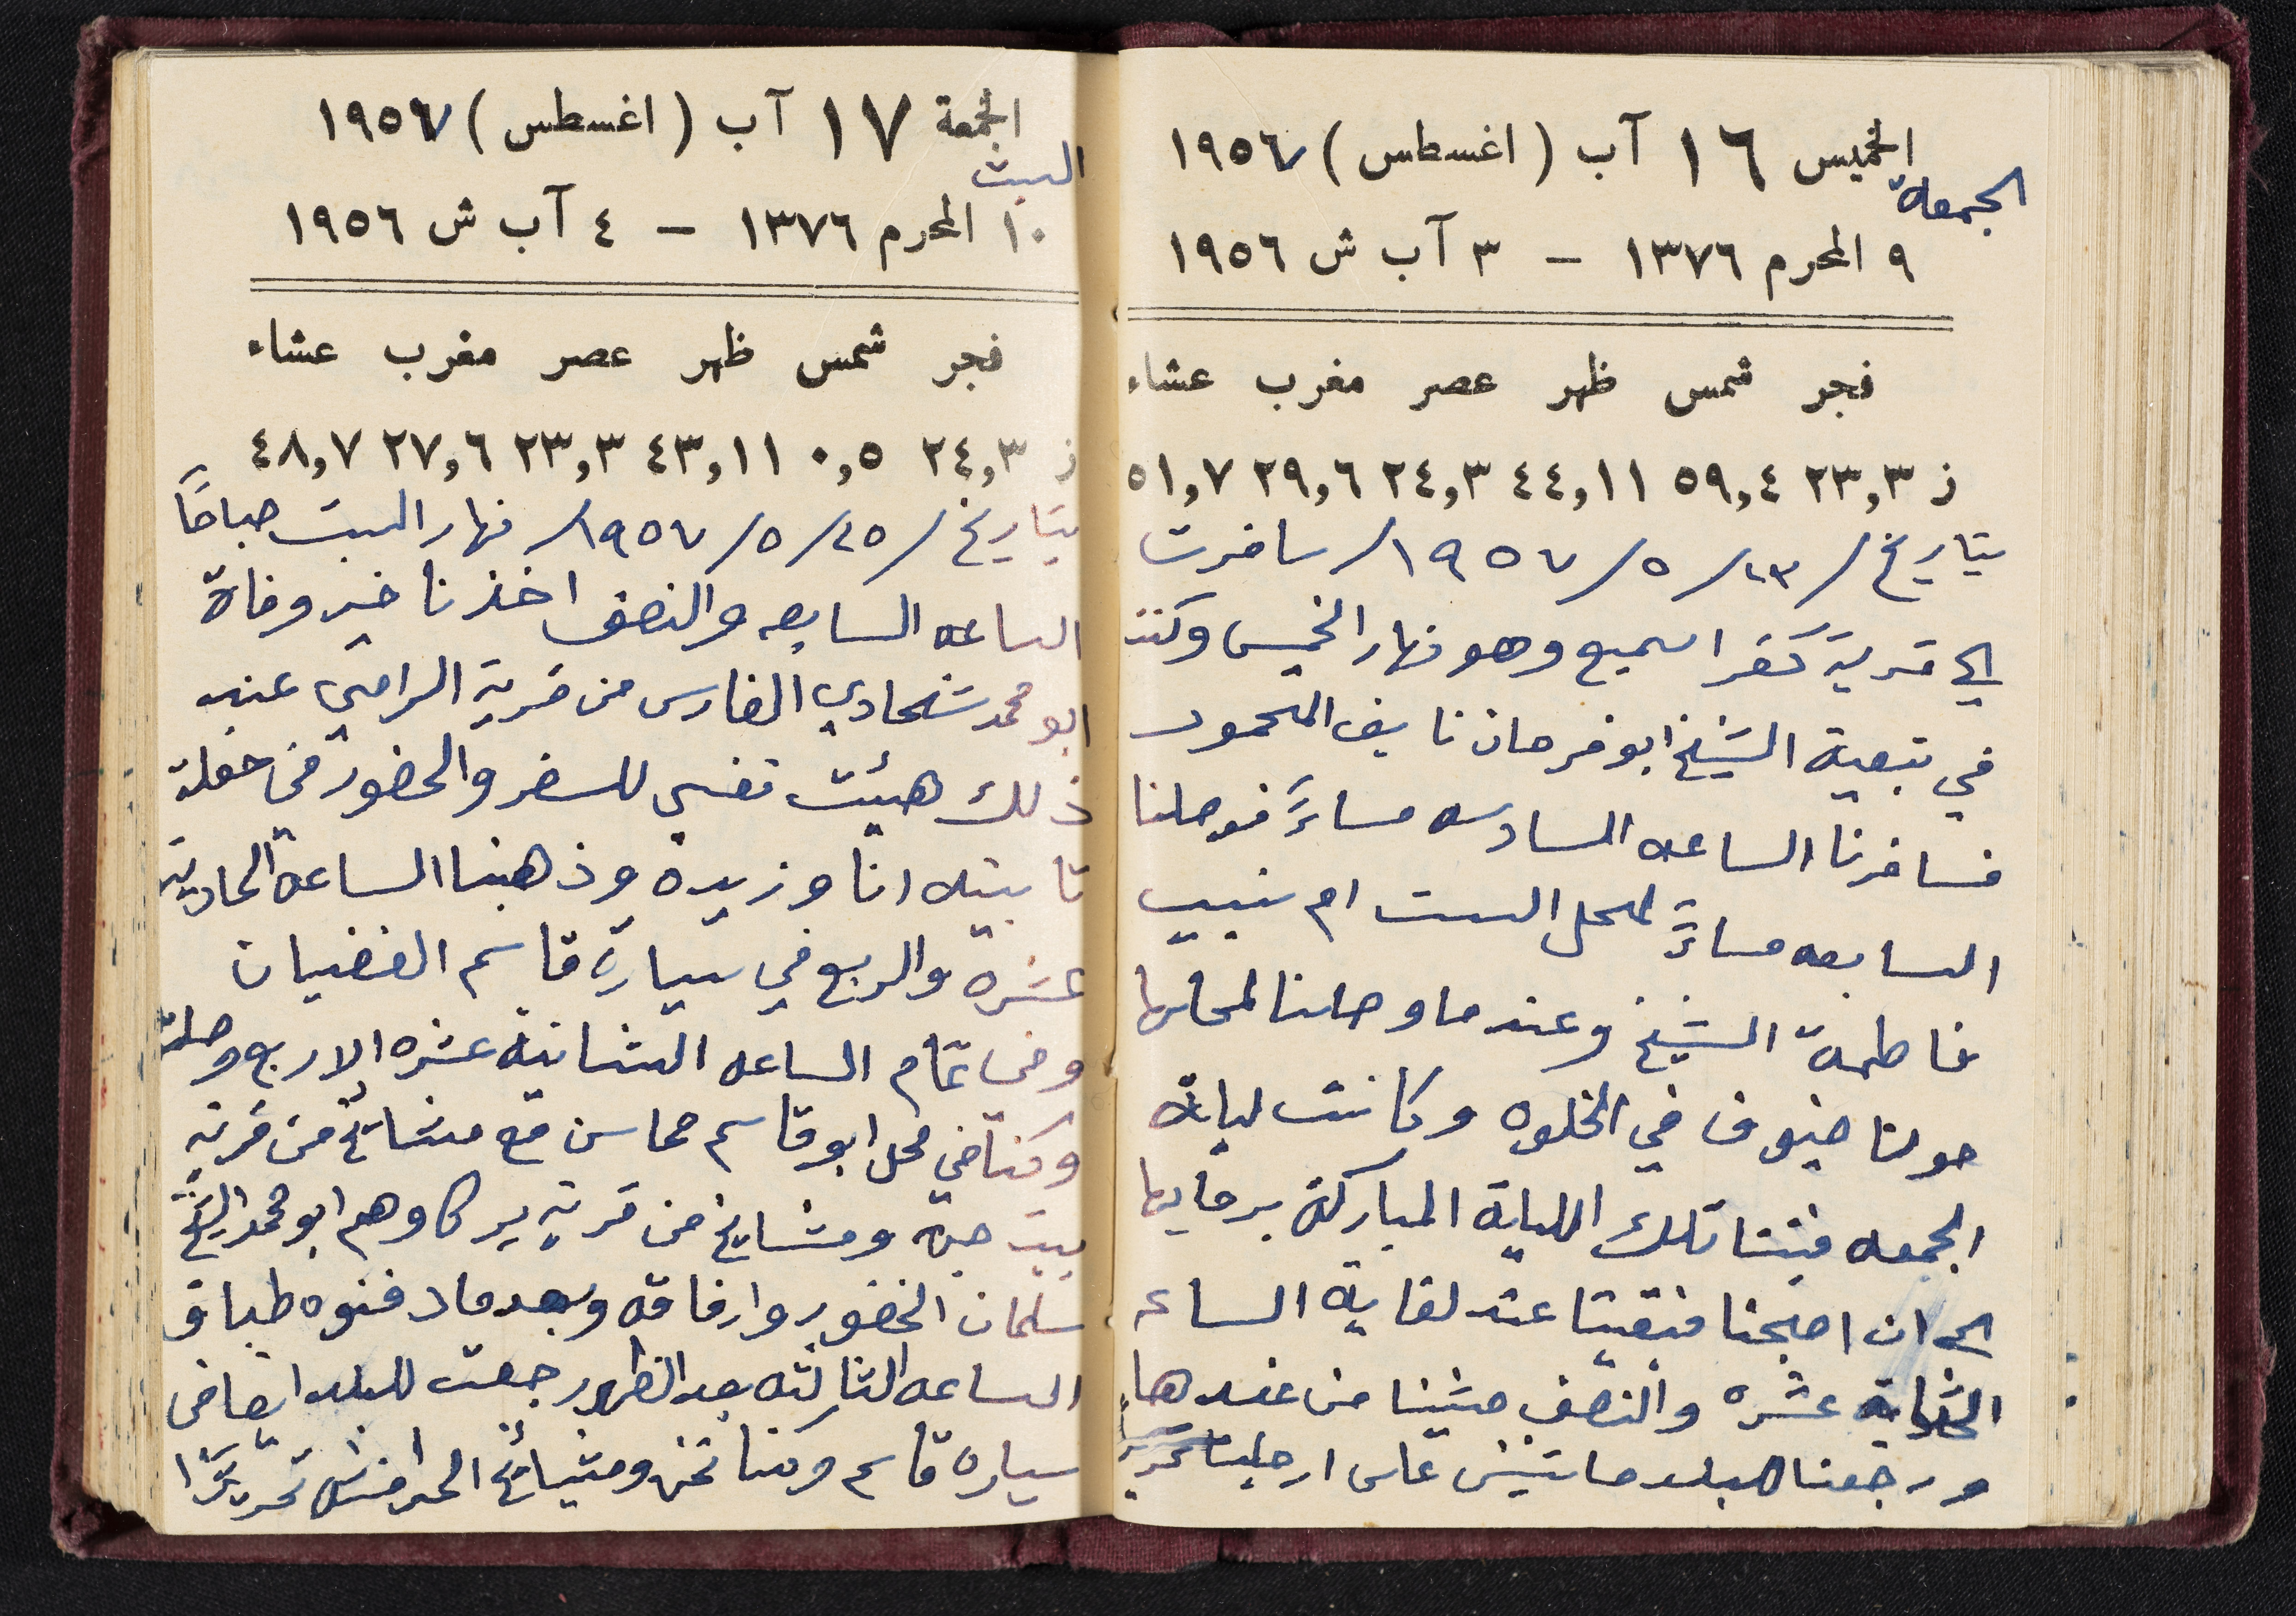 الخميس ١٦ آب (اغسطس) ١٩٥٦٧
الجمعة
٩ المحرم ١٣٧٦ – ٣ آب ش ١٩٥٦
فجر شمس ظهر عصر مغرب عشاء
ز ٢٣,٣ ٥٩,٤ ٤٤,١١ ٢٤,٣ ٢٩,٦ ٥١,٧
بتاريخ /٢٣/ ٥/ ١٩٥٧/ سافرت
الى قرية كفر اسميع وهو نهار الخميس وكنت
في تبعية الشيخ ابو فرحان نايف المحمود
فسافرنا الساعه السادسه مساءً فوصلنا
السابعه مساءً لمحل الست ام نسيب
فاطمة الشيخ وعندما وصلنا لمحلها
حولنا ضيوف في الخلوه وكانت ليلة
الجمعه فبتنا تلك الليلة المباركة برضايها
الى ان اصبحنا فبقينا عند لغاية الساعه
الثانية عشره والنصف مشينا من عندها
ورجعنا للبلد ماشيين على ارجلنا تحريرًا
الجمعة ١٧ آب (اغسطس) ١٩٥٦٧
السبت
١٠ المحرم ١٣٧٦ – ٤ آب ش ١٩٥٦
فجر شمس ظهر عصر مغرب عشاء
ز ٢٤,٣ ٠,٥ ٤٣,١١ ٢٣,٣ ٢٧,٦ ٤٨,٧
بتاريخ /٢٥/ ٥/ ١٩٥٧/ نهار السبت صباحًا
الساعه السابعه والنصف اخذنا خبر وفاة
ابو محمد شحادي الفارس من قرية الرامي عند
ذلك هيئت نفسي للسفر والحضور في حفلة
تابينه انا وزيدة وذهبنا الساعة الحادية
عشره والربع في سيارة قاسم الغضبان
وفي تمام الساعه الثانية عشره الا ربع وصلت
وكنا في محل ابو قاسم محاسن مع مشائخ من قرية
بيت جن ومشايخ من قرية يركا وهم ابو محمد الشيخ
سلمان الخضور وارفاقه وبعد ما دفنوه طباق
الساعه الثالثه بعد الظهر رجعت للبلد ايضا في
سيارة قاسم وكنا نحن ومشيائخ تحريرًا